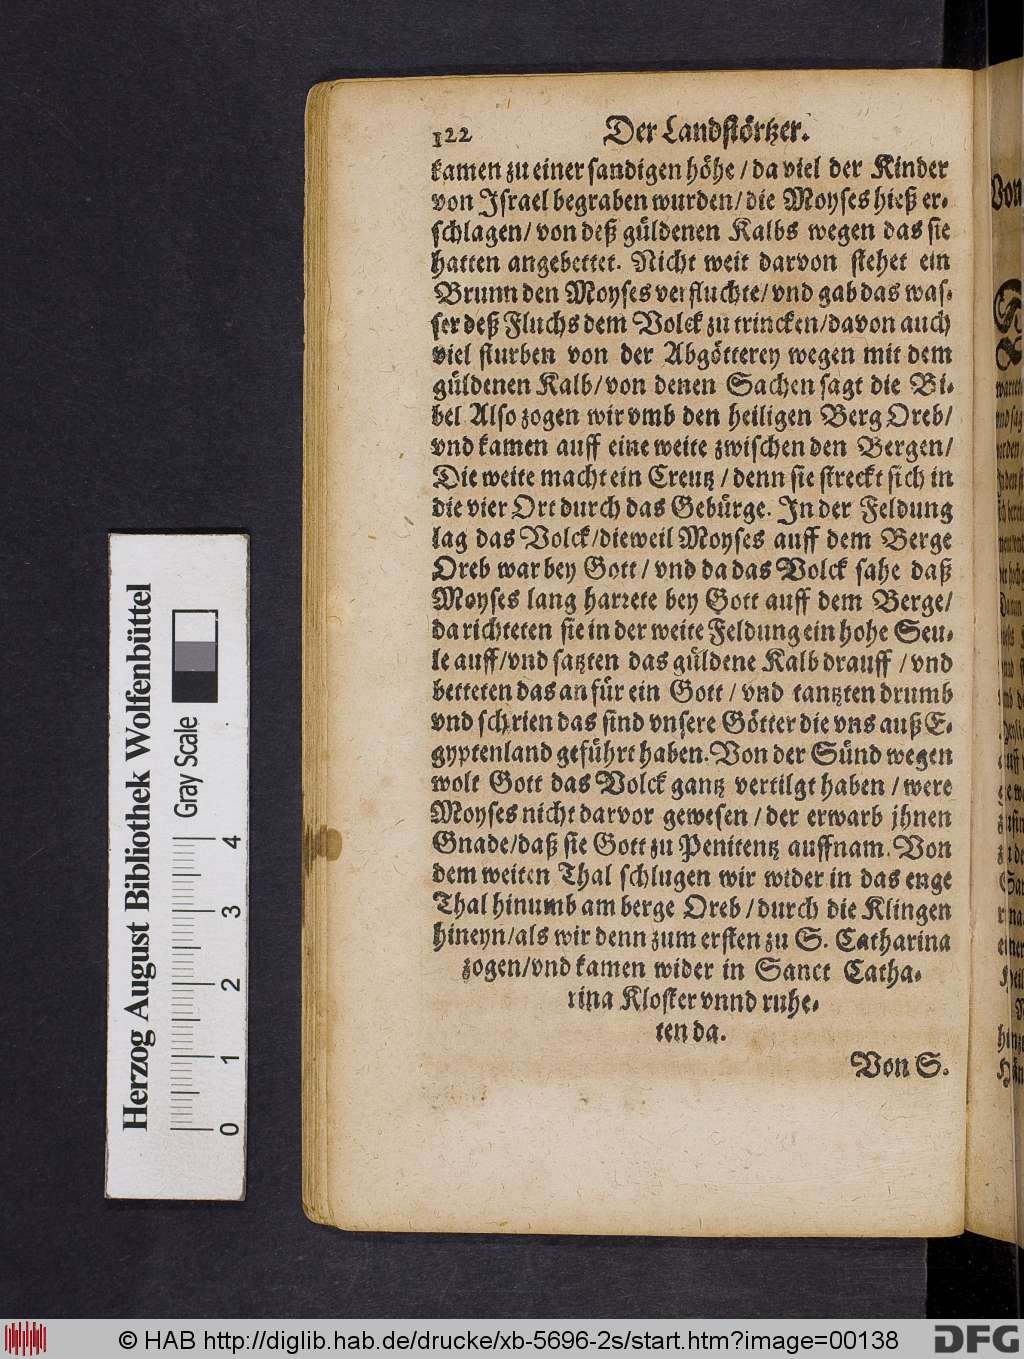 122 Der Landstörtzer.
kamen zu einer sandigen höhe / da viel der Kinder
von Israel begraben wurden / die Moyses hieß er-
schlagen / von deß güldenen Kalbs wegen das sie
hatten angebettet. Nicht weit darvon stehet ein
Brunn den Moyses verfluchte / vnd gab das was-
ser deß Fluchs dem Volck zu trincken / davon auch
viel sturben von der Abgötterey wegen mit dem
güldenen Kalb / von denen Sachen sagt die Bi-
bel Also zogen wir vmb den heiligen Berg Oreb /
vnd kamen auff eine weite zwischen den Bergen /
Die weite macht ein Creutz / denn sie streckt sich in
die vier Ort durch das Gebürge. In der Feldung
lag das Volck / dieweil Moyses auff dem Berge
Oreb war bey Gott / vnd da das Volck sahe daß
Moyses lang harrete bey Gott auff dem Berge /
da richteten sie in der weite Feldung ein hohe Seu-
le auff / vnd satzten das güldene Kalb drauff / vnd
betteten das an für ein Gott / vnd tantzten drumb
vnd schrien das sind vnsere Götter die vns auß E-
gyptenland geführt haben. Von der Sünd wegen
wolt Gott das Volck gantz vertilgt haben / were
Moyses nicht darvor gewesen / der erwarb jhnen
Gnade / daß sie Gott zu Penitentz auffnam. Von
dem weiten Thal schlugen wir wider in das enge
Thal hinumb am berge Oreb / durch die Klingen
hineyn / als wir denn zum ersten zu S. Catharina
zogen / vnd kamen wider in Sanct Catha-
rina Kloster vnnd ruhe-
ten da.
Von S.
Von
Herzog August Bibliothek Wolfenbüttel
Gray Scale
0 1 2 3 4
© HAB http://diglib.hab.de/drucke/xb-5696-2s/start.htm?image=00138
DFG